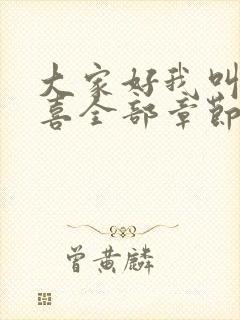 大家好我叫
喜全部章節
曾黄麟